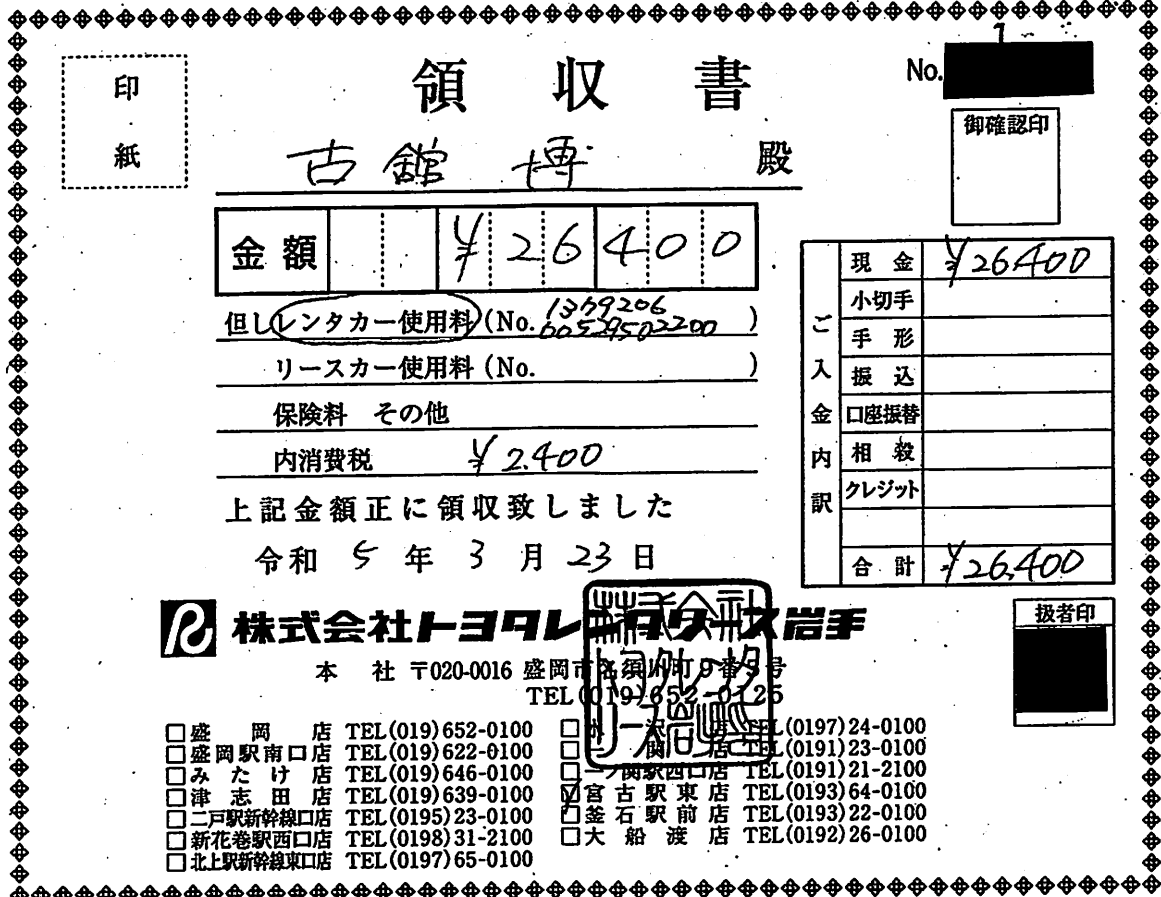 領収書
No.
印紙
御確認印
古舘 博 殿
金額 ¥26400
但しレンタカー使用料 (No. 1379206 00529502200 )
リースカー使用料 (No. )
保険料 その他
内消費税 ¥2,400
上記金額正に領収致しました
令和 5 年 3 月 23 日
ご入金内訳
現金 ¥26400
小切手
手形
振込
口座振替
相殺
クレジット
合計 ¥26,400
扱者印
株式会社トヨタレンタリース岩手
本社 〒020-0016 盛岡市名須川町9番5号
TEL(019)652-0125
株式会社トヨタレンタリース岩手
□盛岡店 TEL(019)652-0100
□盛岡駅南口店 TEL(019)622-0100
□みたけ店 TEL(019)646-0100
□津志田店 TEL(019)639-0100
□二戸駅新幹線口店 TEL(0195)23-0100
□新花巻駅西口店 TEL(0198)31-2100
□北上駅新幹線東口店 TEL(0197)65-0100
□水沢店 TEL(0197)24-0100
□一関店 TEL(0191)23-0100
□一ノ関駅西口店 TEL(0191)21-2100
☑宮古駅東店 TEL(0193)64-0100
□釜石駅前店 TEL(0193)22-0100
□大船渡店 TEL(0192)26-0100